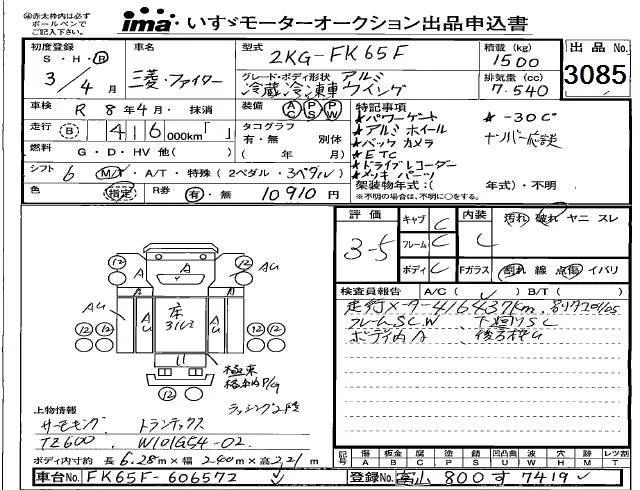 ㊟赤太枠内は必ず
ボールペンで
ご記入下さい。
ima いすゞモーターオークション出品申込書
初度登録 S・H・R
3/4月
車名 三菱・ファイター
型式 2KG-FK65F
積載(kg) 1500
出品No. 3085
グレード・ボディ形状 アルミ
冷蔵冷凍車ウイング
排気量(cc) 7.540
車検 R 8年4月・抹消
装備 AC PS PW
特記事項
★パワーゲート ★-30℃
★アルミホイール ナンバー応談
★バックカメラ
★ETC
★ドライブレコーダー
★メッキパーツ
走行 B 416 000km「 」
タコグラフ 有・無 別体
( 年 月)
燃料 G・D・HV 他( )
シフト 6 M/・A/T・特殊(2ペダル・3ペダル)
架装物年式:( 年式)・不明
※不明の場合は、不明に○をする。
色 指定
R券 有・無 10910円
評価 3-5
キャブ C
フレーム C
ボディ C
内装 C
汚れ 破れ ヤニ スレ
Fガラス 割れ 線 点傷 イバリ
検査員報告 A/C( ✓ ) B/T( )
走行メーター416437km
フレームSC.W 下廻りSC
ボディ内A
12 12 12 12 12 12 12 12
A A A A
AU AU AU AU
床
ラッシング2段
上物情報
サーモキング トランテックス
TZ600 W101G54-02
ボディ内寸約 長 6.28m×幅 2.40m×高 2.21m
記号 傷A 板B 腐C 塗P 錆S 凹U 凹凸曲 波W 穴H 跡M ツ割T
車台No. FK65F-606572
登録No. 富山 800 す 7419